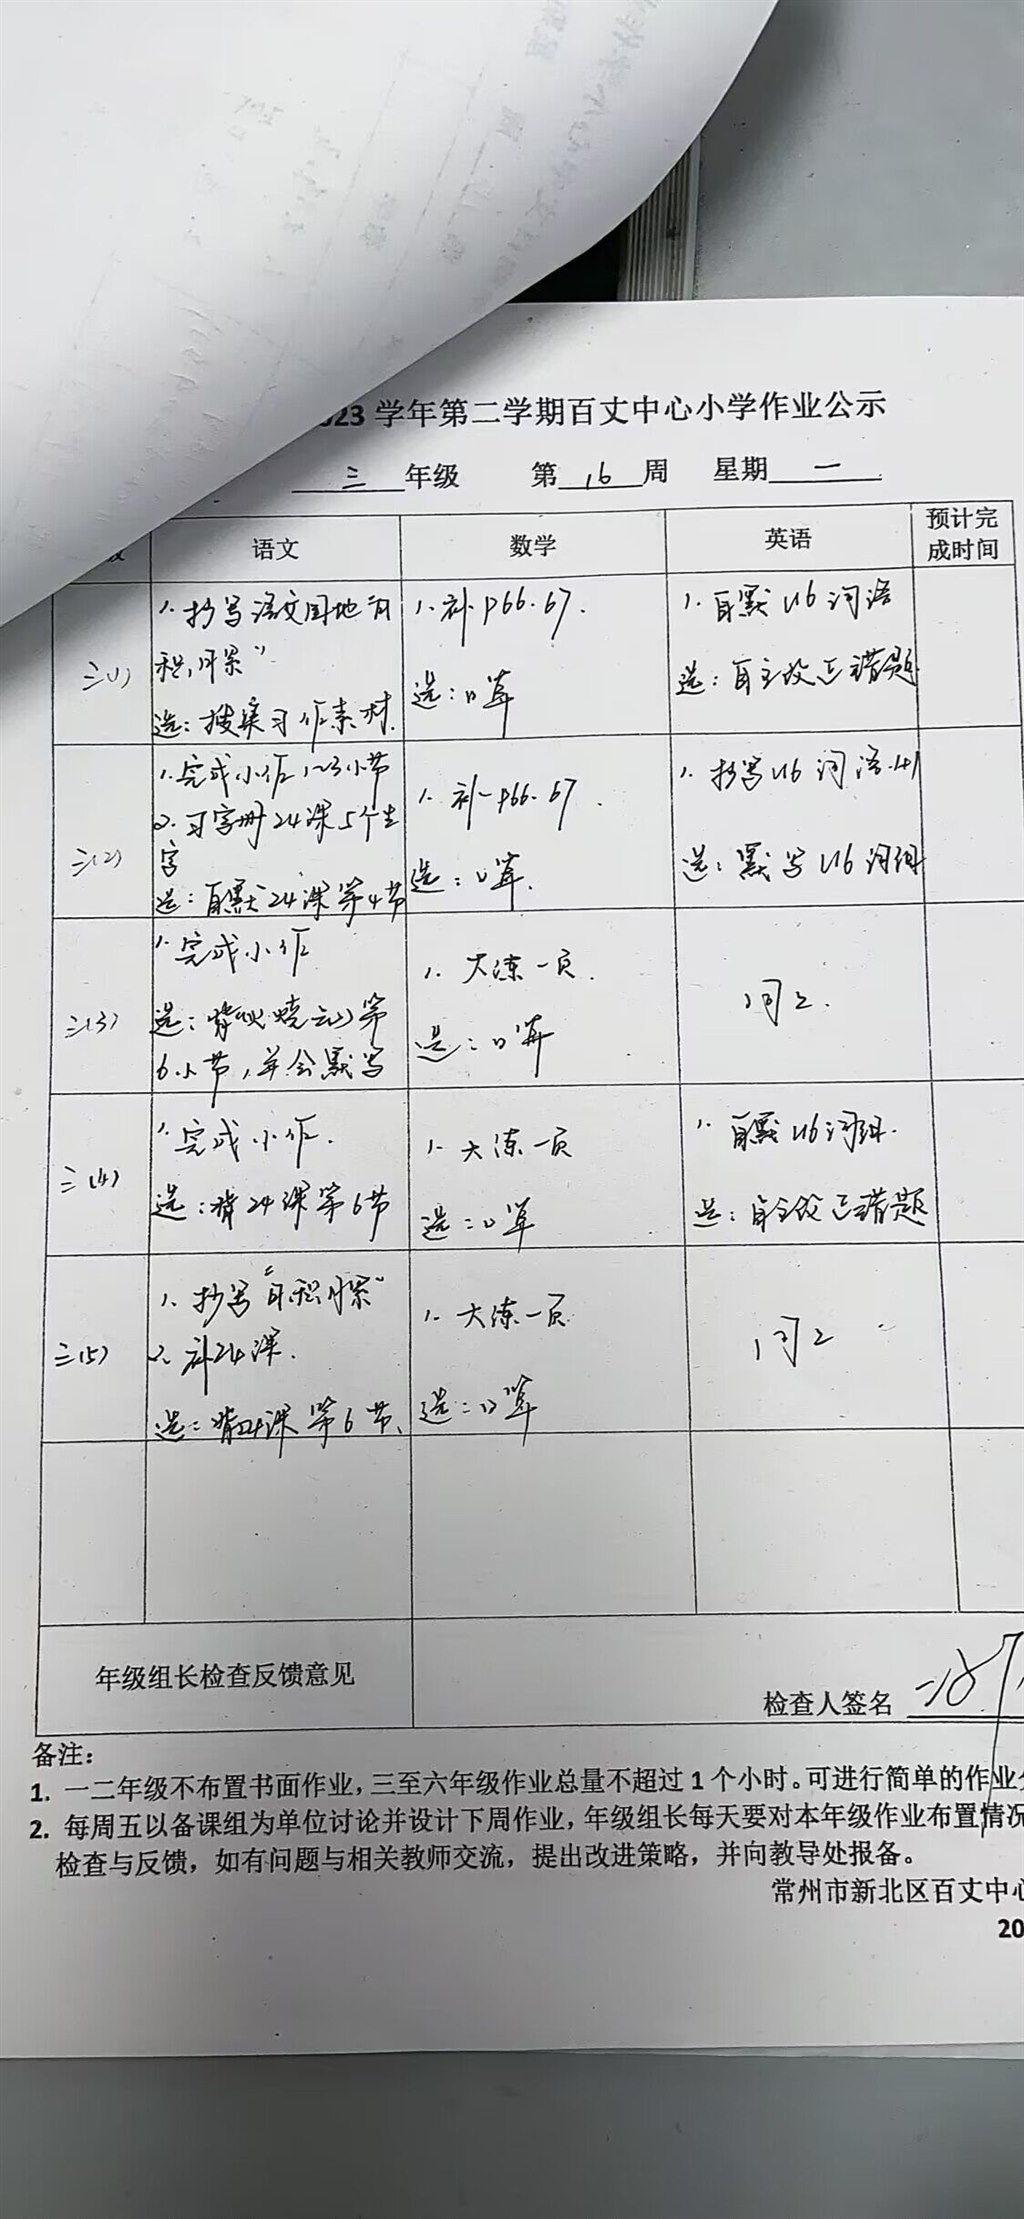 023 学年第二学期百丈中心小学作业公示
三 年级 第 16 周 星期 一
语文 数学 英语 预计完成时间
三(1)
1. 抄写语文园地"日
积月累"
选：搜集习作素材.
1. 补 P66. 67.
选：口算
1. 自默 U6 词语
选：自主改正错题
三(2)
1. 完成小作 1~3小节
2. 习字册 24课 5个生
字
选：自默 24课 第4节
1. 补 P66. 67.
选：口算.
1. 抄写 U6 词语
选：默写 U6 词组
三(3)
1. 完成小作
选：背《火烧云》第
6小节，并会默写
1. 大练一页.
选：口算
同2.
三(4)
1. 完成小作.
选：背24课第6节
1. 大练一页
选：口算
1. 自默 U6 词组.
选：自主改正错题
三(5)
1. 抄写"日积月累"
2. 补24课.
选：背24课第6节.
1. 大练一页
选：口算
同2
年级组长检查反馈意见
检查人签名
备注：
1. 一二年级不布置书面作业，三至六年级作业总量不超过 1 个小时。可进行简单的作业
2. 每周五以备课组为单位讨论并设计下周作业，年级组长每天要对本年级作业布置情况
检查与反馈，如有问题与相关教师交流，提出改进策略，并向教导处报备。
常州市新北区百丈中心
20